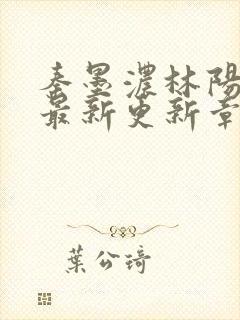 秦墨濃林陽
最新更新章
葉公琦